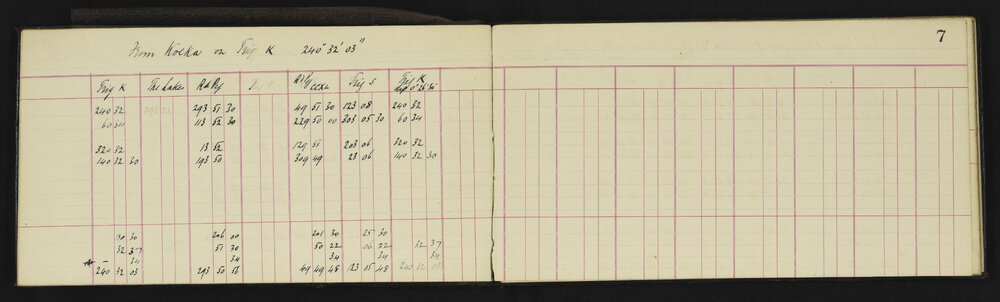 7
From Kocka on Trig K 240° 32' 03"
Trig K The Lakes Rd Py Rd Py Trig S Trig K
240 32 293 51 30 49 51 30 123 08 240 32
60 34 113 52 30 229 50 00 303 05 30 60 34
320 32 13 52 129 51 203 06 320 32
140 32 30 193 50 309 49 23 06 140 32 30
130 30 206 00 201 30 25 30
32 37 51 30 50 22 06 22 32 37
— 34 34 34 34 34
240 32 03 293 50 56 49 49 48 123 05 48 240 32 03